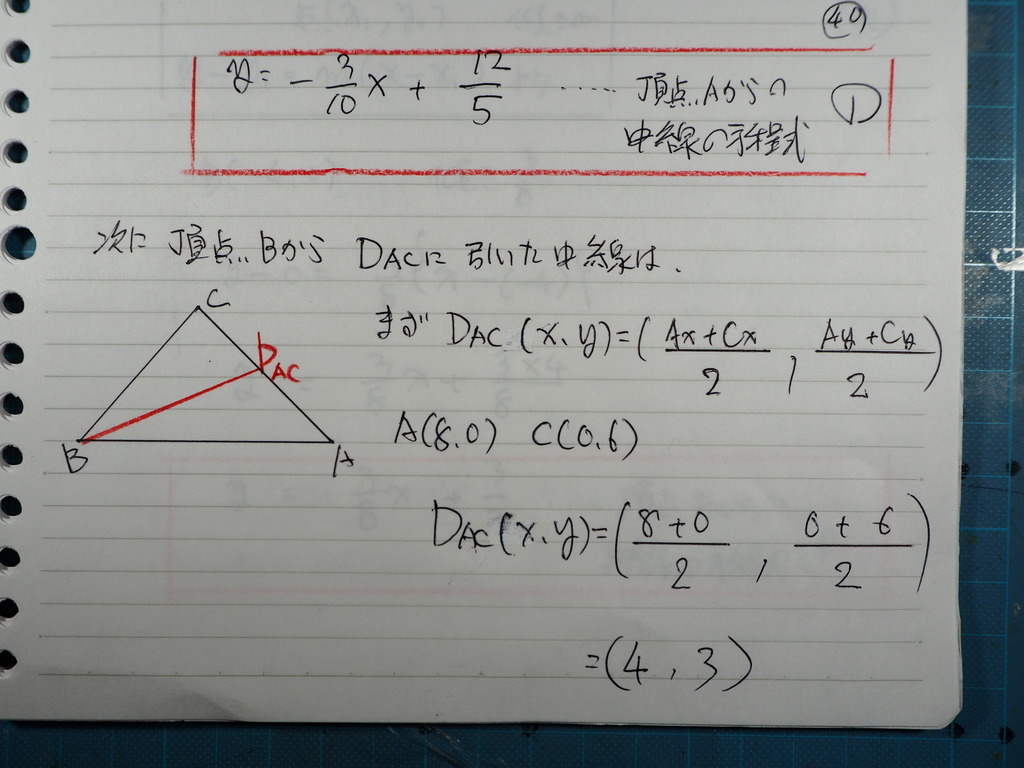 40
y = - 3/10 x + 12/5 ...... 頂点Aからの ①
中線の方程式
次に 頂点Bから DACに引いた中線は、
まず DAC (x、y)=( Ax+Cx/2 , Ay+Cy/2 )
C
DAC
B
A
A(8.0) C(0.6)
DAC(x、y)=( 8+0/2 , 0+6/2 )
=(4 , 3)